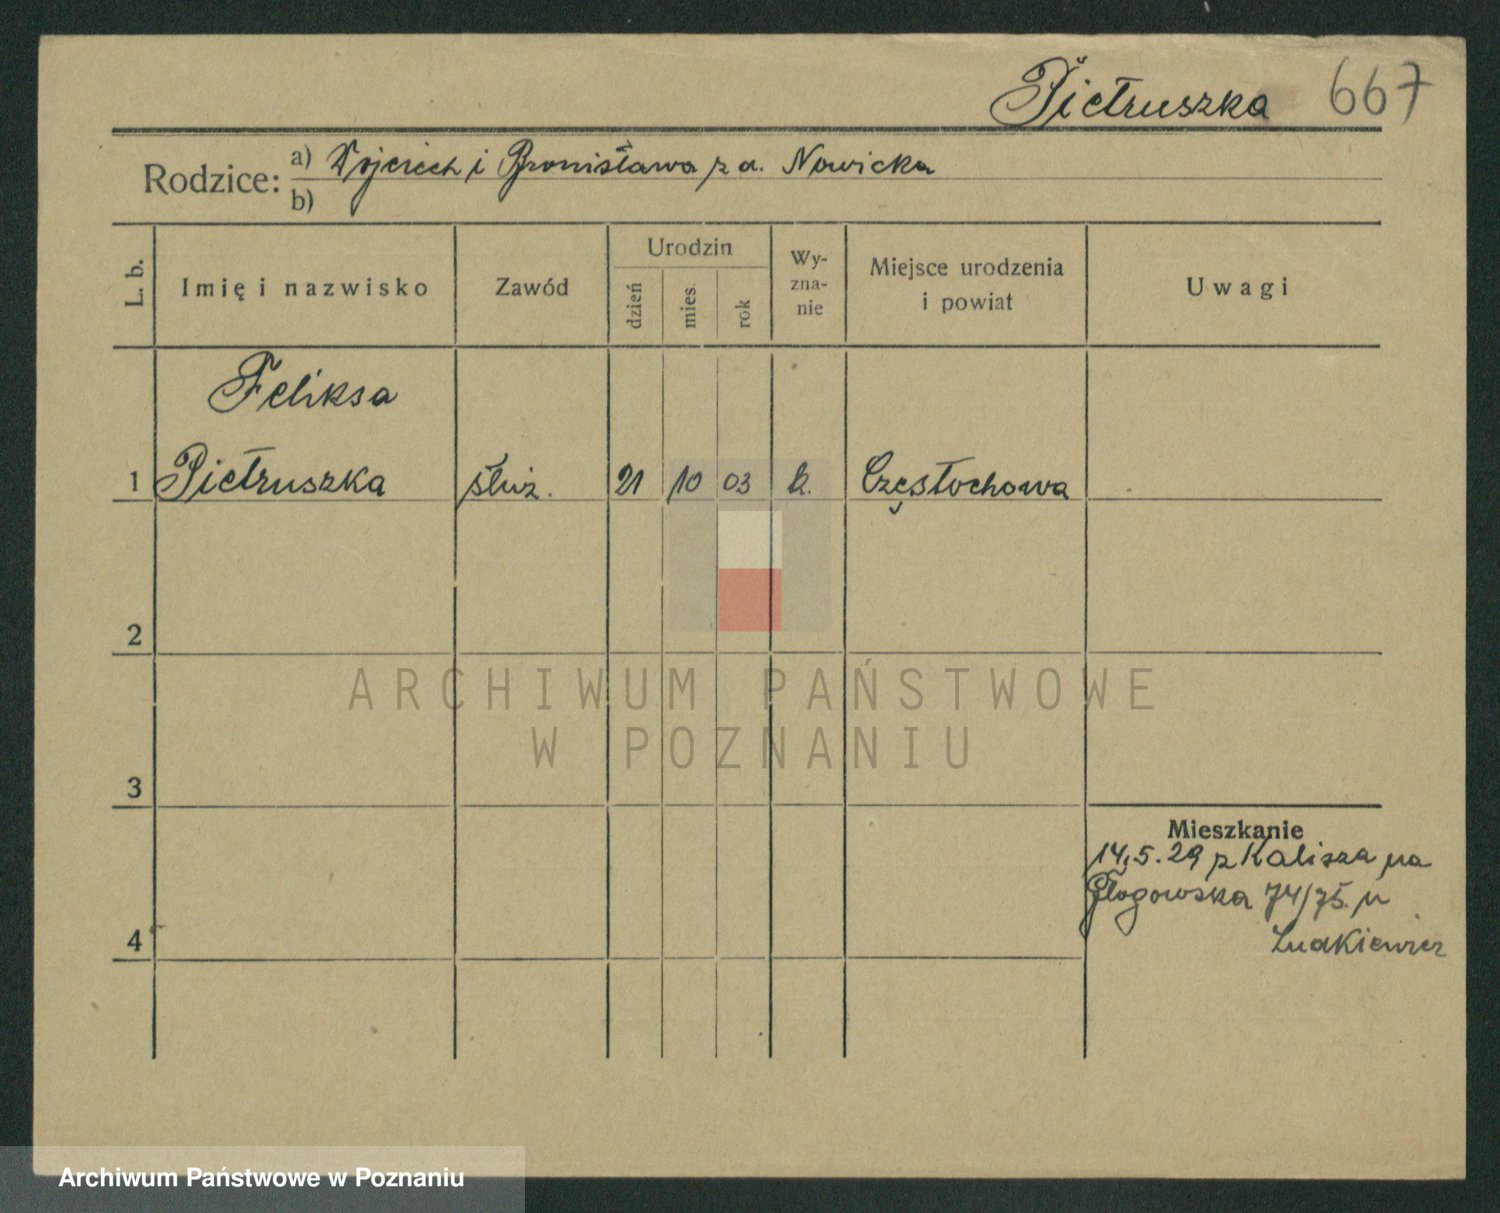 Pietruszka 667
Rodzice: a) Wojciech i Bronisława z d. Nowicka
b)
L. b. Imię i nazwisko Zawód Urodzin dzień mies. rok Wy-zna-nie Miejsce urodzenia i powiat Uwagi
Feliksa
1 Pietruszka służ. 21 10 03 k. Częstochowa
2
ARCHIWUM PAŃSTWOWE
W POZNANIU
3
Mieszkanie
14.5.29 z Kalisza na
Głogowska 74/75. u
4
Archiwum Państwowe w Poznaniu